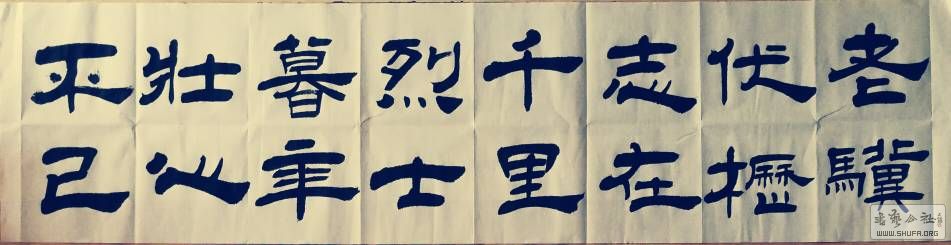 老驥
伏櫪
志在
千里
烈士
暮年
壯心
不已
書藝公社
WWW.SHUFA.ORG